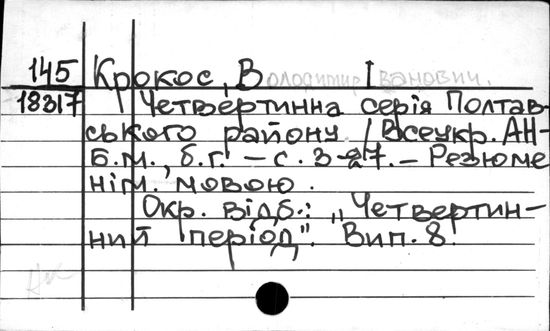 145 Крокос, Володимир Іванович.
18317 Четвертинна серія Полтав-
ського району / Всеукр. АН-
Б.м., б.г. - с. 3-27. - Резюме
нім. мовою.
Окр. відб.: "Четвертин-
ний період". Вип. 8.